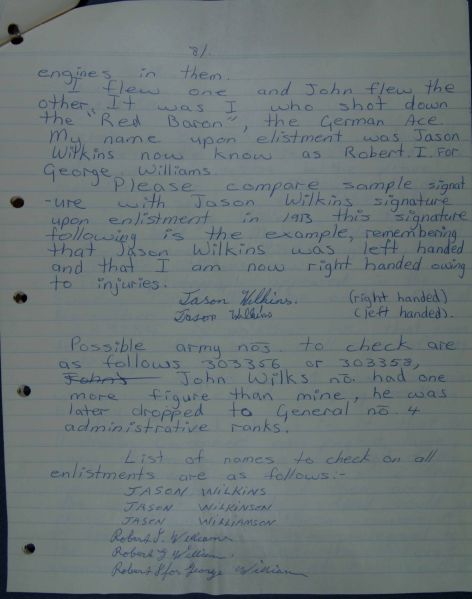 8/.
engines in them.
I flew one and John flew the
other. It was I who shot down
the "Red Baron", the German Ace.
My name upon elistment was Jason
Wilkins now know as Robert. I. For
George Williams.
Please compare sample signat
-ure with Jason Wilkins signature
upon enlistment in 1913 this signature
following is the example, remembering
that Jason Wilkins was left handed
and that I am now right handed owing
to injuries.
Jason Wilkins. (right handed)
Jason Wilkins (left handed).
Possible army nos. to check are
as follows 303356 or 303358,
John's John Wilks no. had one
more figure than mine, he was
later dropped to General no. 4
administrative ranks.
List of names to check on all
enlistments are as follows:-
JASON WILKINS
JASON WILKINSON
JASON WILLIAMSON
Robert Williams
Robert William.
Robert for George William